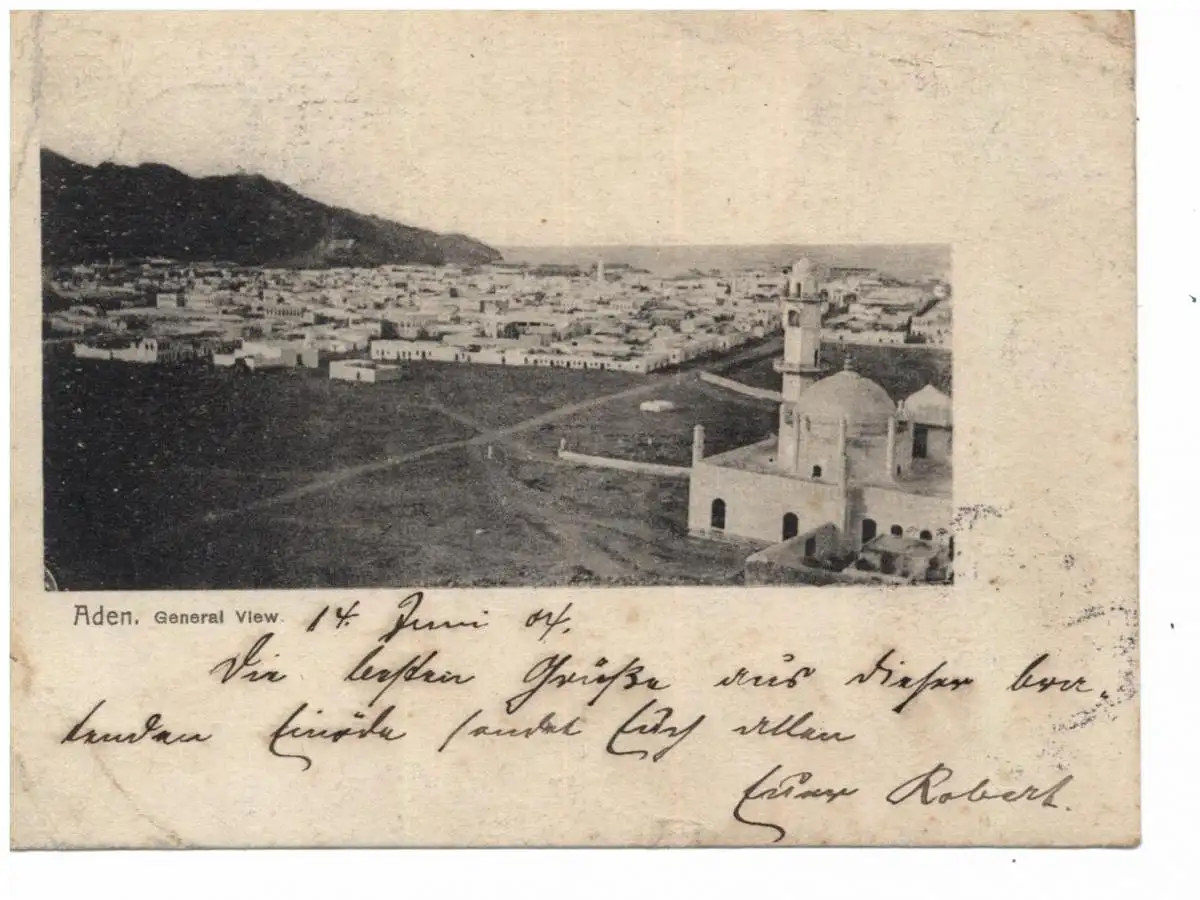 Aden. General View. 14. Juni 04.
Die besten Grüße aus dieser bra-
tenden Einöde sendet Euch allen
Euer Robert.